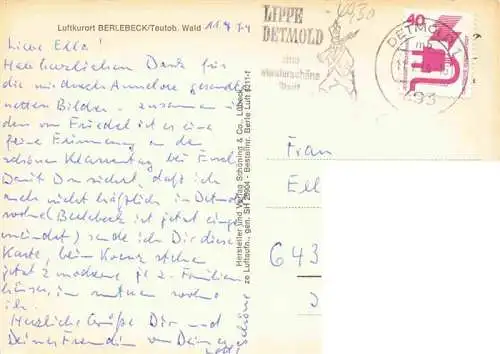 Luftkurort BERLEBECK/Teutob. Wald 11.4.74
Liebe Ella!
Hab herzlichen Dank für
die mir durch Annelore gesandten
netten Bilder – zusammen mit
den von Friedel ist es eine
feine Erinnerung an den
schönen Klassentag bei
Damit Du siehst, daß ich
auch nicht häßlich in Detmold
wohne (Berlebeck ist jetzt einge-
meindet) sende ich Dir diese
Karte, beim Kreuz stehen
jetzt 2 moderne je 2-Familien
häuser, in einem wohne
ich.
Herzliche Grüße Dir und
Deiner Freundin von Deiner
Hersteller und Verlag Schöning & Co., Lübeck
ze Luftaufn., gen. SH 28904 - Bestellnr. Berle Luft 6211-f
LIPPE
DETMOLD
eine
wunderschöne
Stadt
4930
DETMOLD 1
mb
493
40
Frau
Ell
643